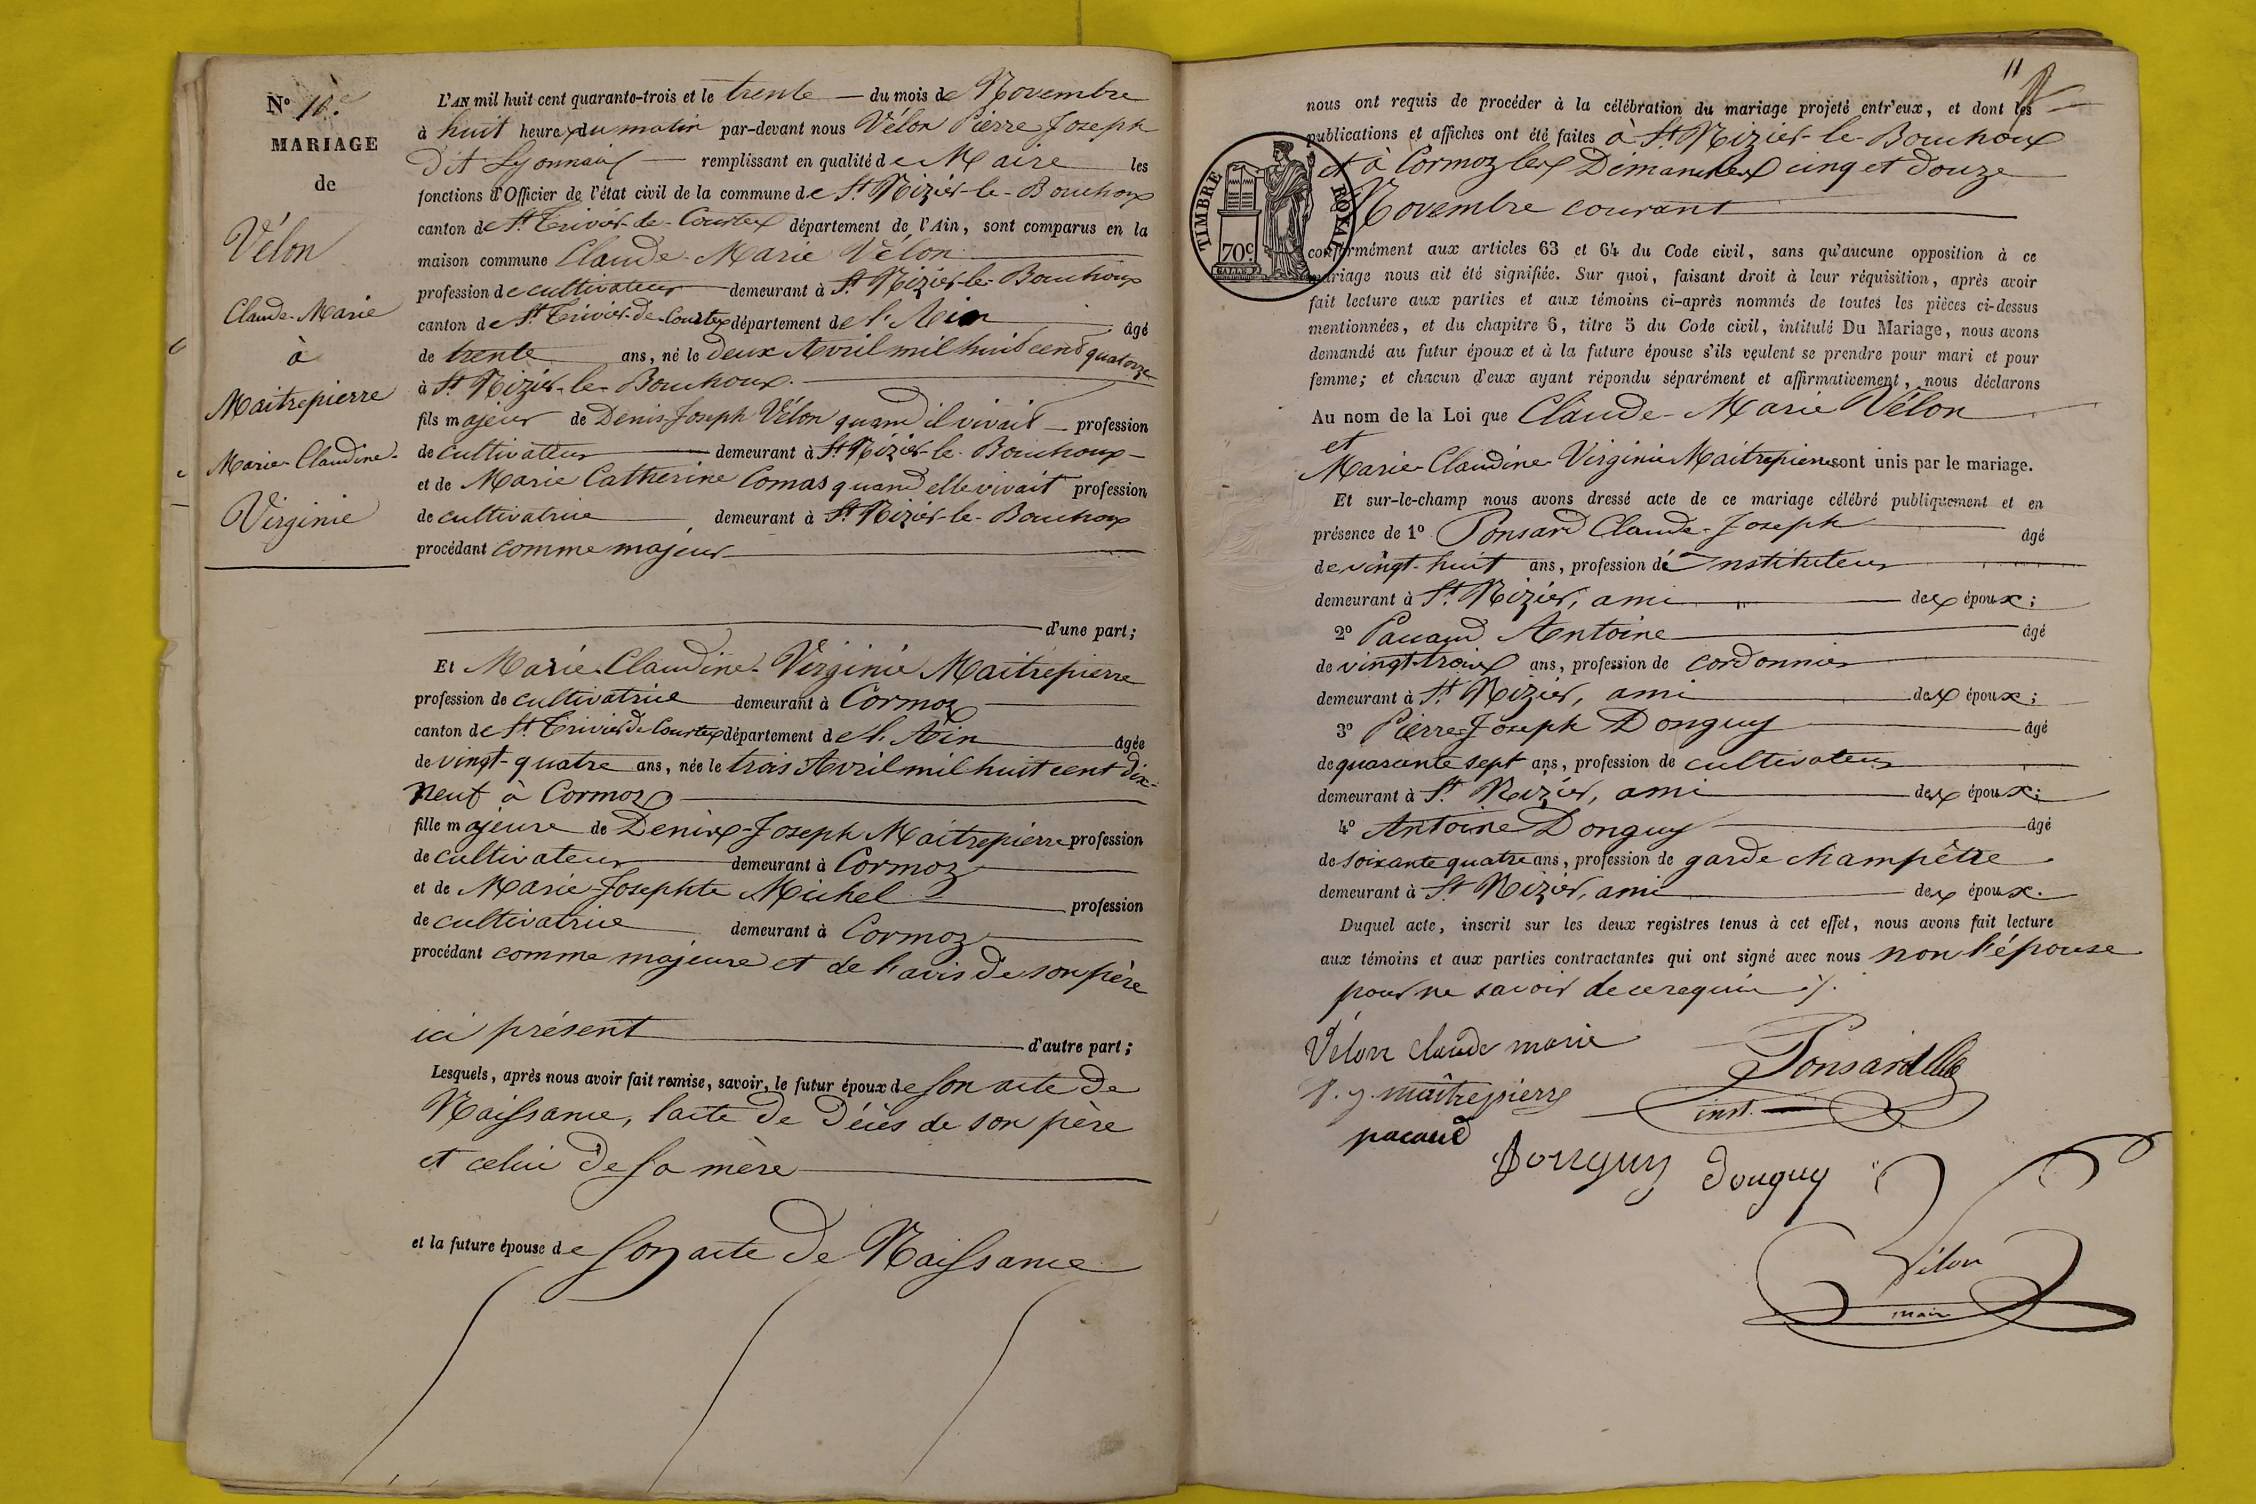 N° 10.e
MARIAGE
de
Vélon
Claude-Marie
à
Maitrepierre
Marie-Claudine-
Virginie
L'AN mil huit cent quarante-trois et le trente du mois de Novembre
à huit heures du matin par-devant nous Vélon Pierre Joseph
dit Lyonnais remplissant en qualité de Maire les
fonctions d'Officier de l'état civil de la commune de St. Nizier-le-Bouchoux
canton de St. Trivier-de-Courtes département de l'Ain, sont comparus en la
maison commune Claude-Marie Vélon
profession de cultivateur demeurant à St. Nizier-le-Bouchoux
canton de St. Trivier-de-Courtes département de l'Ain âgé
de trente ans, né le deux Avril mil huit cent quatorze
à St. Nizier-le-Bouchoux.
fils majeur de Denis-Joseph Vélon quand il vivait profession
de cultivateur demeurant à St. Nizier-le-Bouchoux
et de Marie Catherine Comas quand elle vivait profession
de cultivatrice demeurant à St. Nizier-le-Bouchoux
procédant comme majeur
d'une part;
Et Marie-Claudine-Virginie Maitrepierre
profession de cultivatrice demeurant à Cormoz
canton de St. Trivier de Courtes département de l'Ain âgée
de vingt-quatre ans, née le trois Avril mil huit cent dix-
neuf à Cormoz
fille majeure de Denis-Joseph Maitrepierre profession
de cultivateur demeurant à Cormoz
et de Marie-Josephte Michel profession
de cultivatrice demeurant à Cormoz
procédant comme majeure et de l'avis de son père
ici présent d'autre part;
Lesquels, après nous avoir fait remise, savoir, le futur époux de son acte de
Naissance, l'acte de décès de son père
et celui de sa mère
et la future épouse de son acte de Naissance
11
nous ont requis de procéder à la célébration du mariage projeté entr'eux, et dont les
publications et affiches ont été faites à St. Nizier-le-Bouchoux
et à Cormoz les Dimanches cinq et douze
Novembre courant
TIMBRE ROYAL
70c
conformément aux articles 63 et 64 du Code civil, sans qu'aucune opposition à ce
mariage nous ait été signifiée. Sur quoi, faisant droit à leur réquisition, après avoir
fait lecture aux parties et aux témoins ci-après nommés de toutes les pièces ci-dessus
mentionnées, et du chapitre 6, titre 5 du Code civil, intitulé Du Mariage, nous avons
demandé au futur époux et à la future épouse s'ils veulent se prendre pour mari et pour
femme; et chacun d'eux ayant répondu séparément et affirmativement, nous déclarons
Au nom de la Loi que Claude-Marie Vélon
et
Marie-Claudine-Virginie Maitrepierre sont unis par le mariage.
Et sur-le-champ nous avons dressé acte de ce mariage célébré publiquement et en
présence de 1° Ponsard Claude-Joseph âgé
de vingt-huit ans, profession d'Instituteur
demeurant à St. Nizier, ami des époux;
2° Pacaud Antoine âgé
de vingt-trois ans, profession de cordonnier
demeurant à St. Nizier, ami des époux;
3° Pierre-Joseph Donguy âgé
de quarante sept ans, profession de cultivateur
demeurant à St. Nizier, ami des époux;
4° Antoine Donguy âgé
de soixante quatre ans, profession de garde champêtre
demeurant à St. Nizier, ami des époux.
Duquel acte, inscrit sur les deux registres tenus à cet effet, nous avons fait lecture
aux témoins et aux parties contractantes qui ont signé avec nous non l'épouse
pour ne savoir de ce requise ./.
Vélon claude marie
Ponsard
D. J. maîtrepierre
inst.
pacaud
Donguy donguy
Vélon
maire